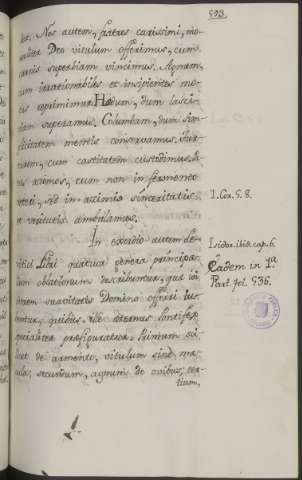 593.
Nos autem, fratres carissimi, mo-
Deo vitulum offerimus, cum
carnis superbiam vincimus. Agnum,
cum irrationabiles et insipientes mo-
tus coprimimus. Hædum, dum lasci-
viam superamus. Columbam, dum sim-
plicitatem mentis conservamus. Tur-
turem, cum castitatem custodimus.
azimos, cum non in fermento
veteri, sed in azimis sinceritatis,
et veritatis ambulamus.
In exordio autem Le-
vitici Libri quatuor genera principa-
lium oblationum describuntur, quæ in
odorem suavitatis Domino offerri iu-
bentur, quibus ille æternus Pontifex
specialiter præfiguratur. Primum sci-
licet de armento, vitulum sine ma-
cula; secundum, agnum de ovibus; ter-
tium,
1. Cor. 5. 8.
Isidor. ibid. cap. 6.
Eadem in 1ª
Part. fol. 536.